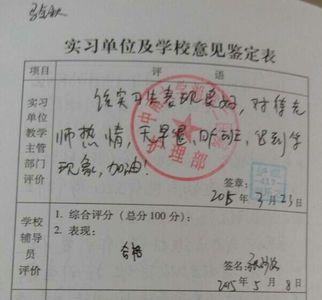 实习单位及学校意见鉴定表
项目
评 语
实习
单位
教学
主管
部门
评价
该实习生表现良好,对待老
师热情,无早退、
现象,加油!
签章:
2015年3月23日
学校
辅导
员
评价
1. 综合评分(总分100分):
2. 表现:
合格
签名:
2015年5月8日